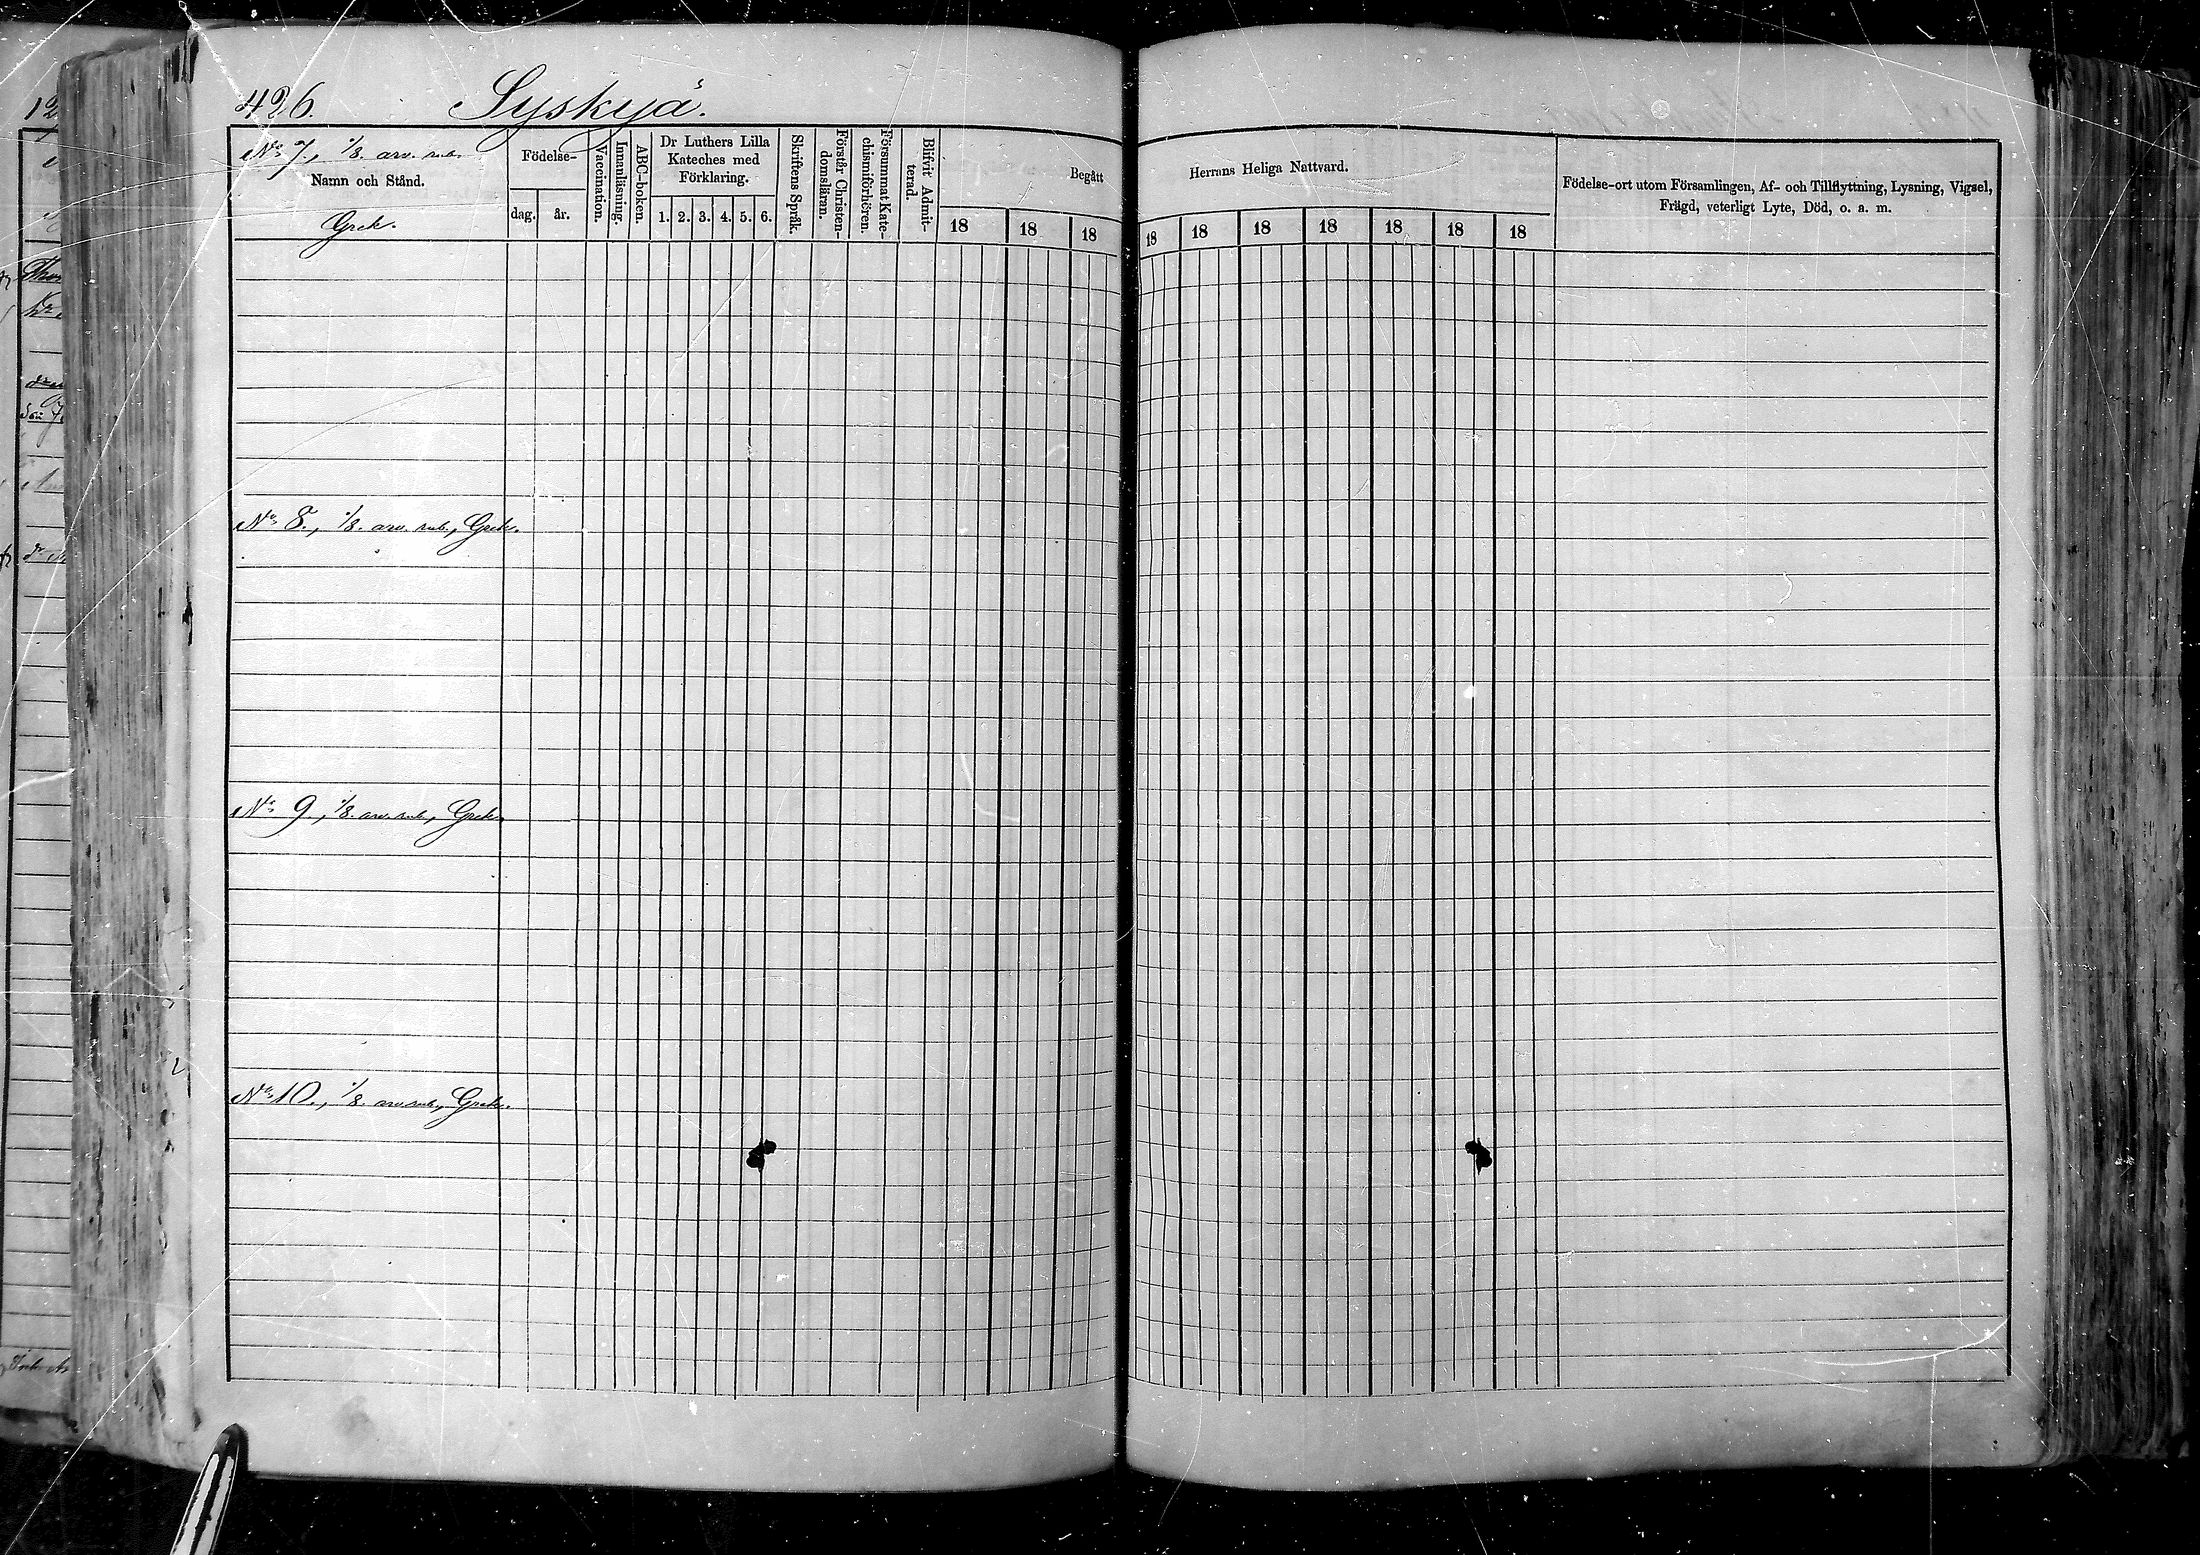 426. Syskyä.
No 7., 1/8. arv. rub.
Namn och Stånd.
Grek.
Födelse-
dag. år.
Vaccination.
Innanläsning.
ABC-boken.
Dr Luthers Lilla
Kateches med
Förklaring.
1. 2. 3. 4. 5. 6.
Skriftens Språk.
Förstår Christen-
domsläran.
Försummat Kate-
chismiförhören.
Blifvit Admit-
terad.
Begått
18 18 18
Herrans Heliga Nattvard.
18 18 18 18 18 18 18
Födelse-ort utom Församlingen, Af- och Tillflyttning, Lysning, Vigsel,
Frägd, veterligt Lyte, Död, o. a. m.
No 8., 1/8. arv. rub., Grek.
No 9., 1/8. arv. rub., Grek.
No 10., 1/8. arv. rub., Grek.